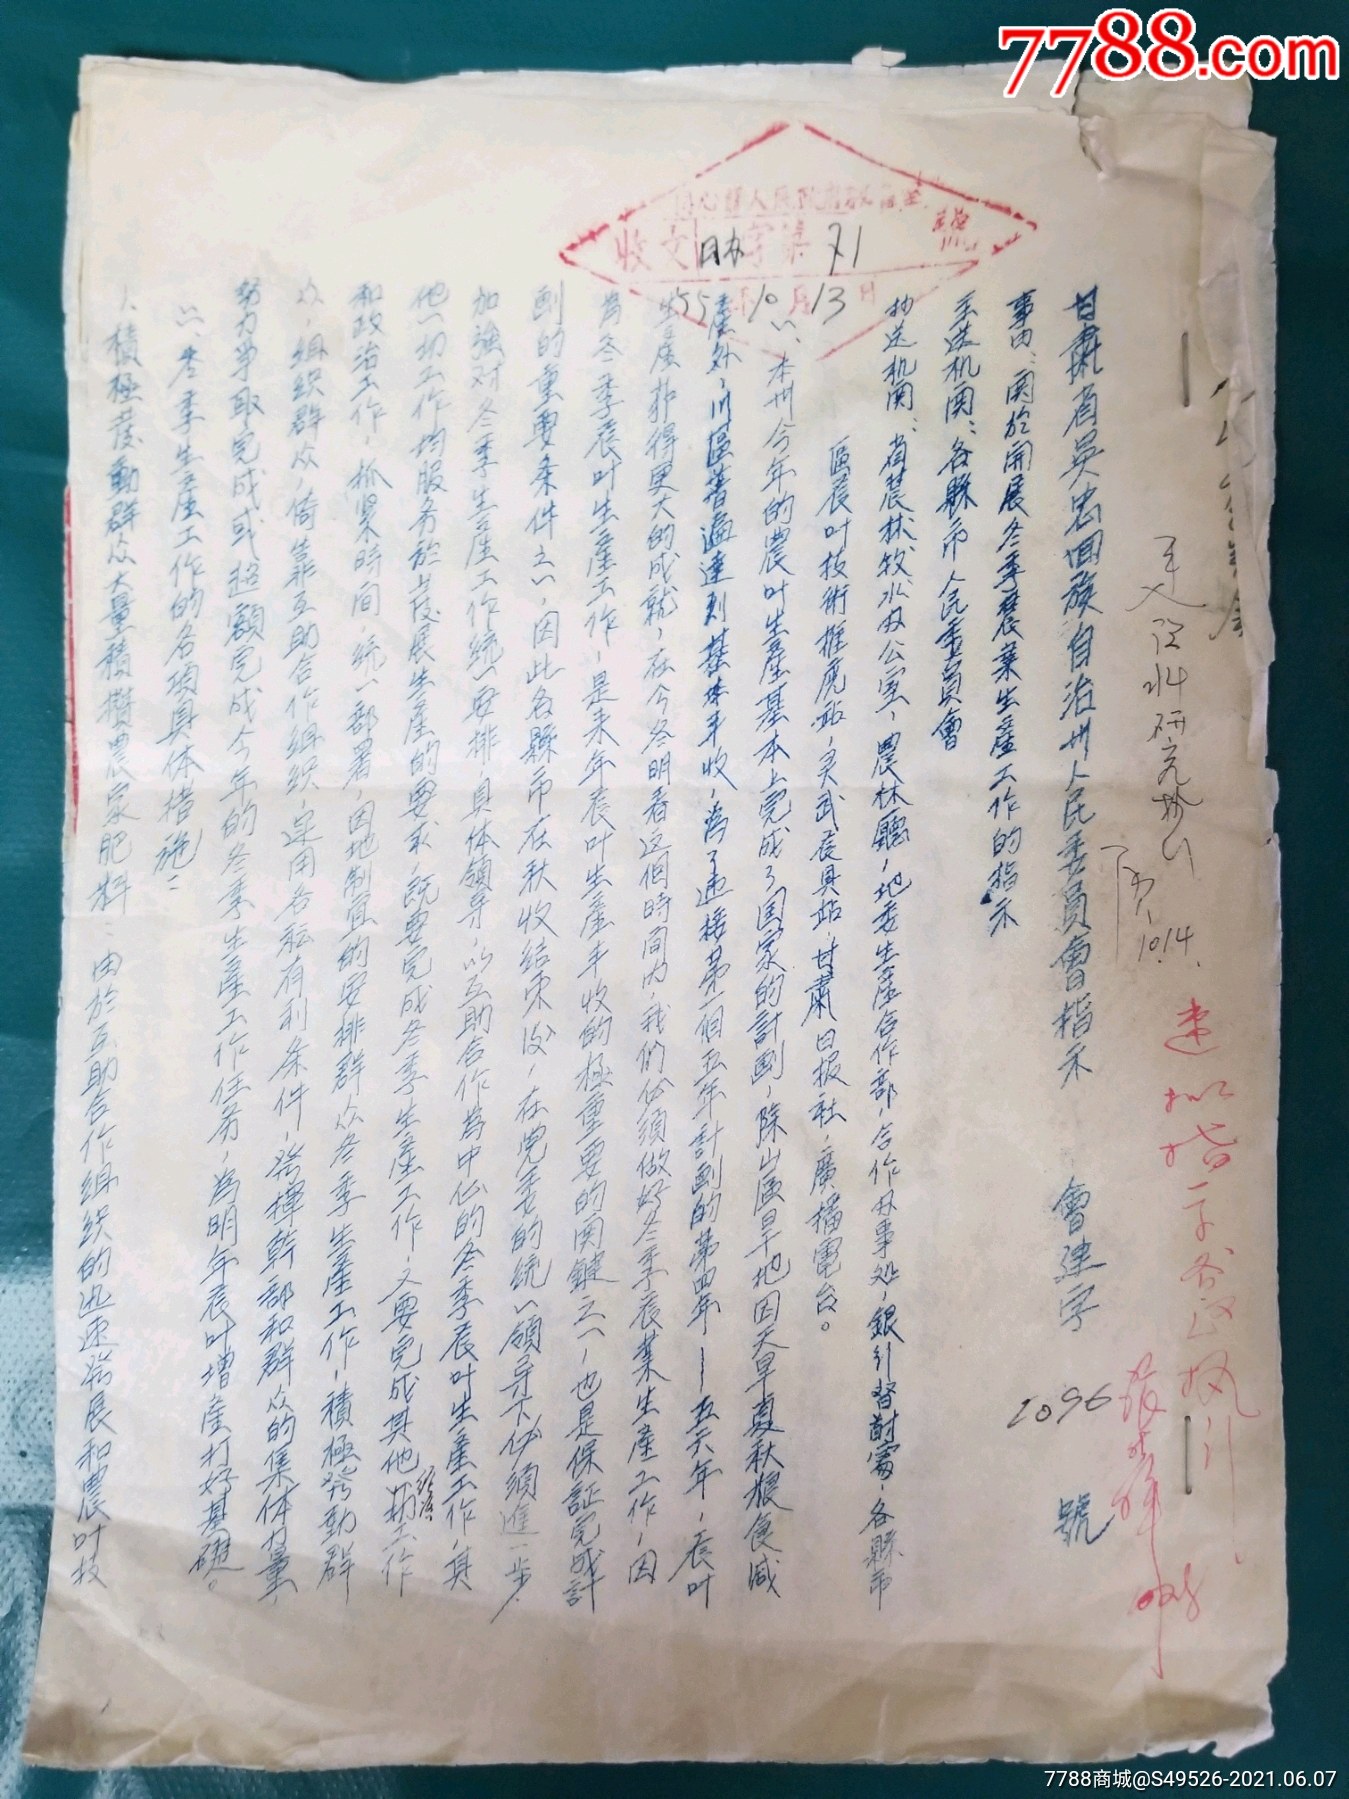 7788.com
同心縣人民
收文 日办字第 71 號
55年10月13日
甘肅省吳忠回族自治州人民委員會指示 會建字 2096 號
事由：関於開展冬季農業生產工作的指示
主送机関：各縣市人民委員會
抄送机関：省農林牧水办公室，農林廳，地委生產合作部，合作办事処，銀行督討處，各縣市
區农叶技術推廣站，灵武农具站，甘肅日报社，廣播電台。
一、本州今年的農叶生產基本上完成了国家的計劃，除山區旱地因天旱夏秋粮食减
產外，川區普遍達到基本丰收，為了迎接第一個五年計劃的第四年——五六年，农叶
生產获得更大的成就，在今冬明春这個時间内，我們必須做好冬季农業生產工作，因
為冬季农叶生產工作，是来年农叶生產丰收的極重要的関鍵之一，也是保証完成計
劃的重要条件之一，因此各縣市在秋收结束后，在党委的統一領导下必須進一步
加強对冬季生產工作統一安排，具体領导，以互助合作為中心的冬季农叶生產工作，其
他一切工作均服务於上发展生產的要求，既要完成冬季生產工作，又要完成其他經济工作
和政治工作，抓紧時间，統一部署，因地制宜的安排群众冬季生產工作，積極発動群
众，组织群众，倚靠互助合作组织，运用各种有利条件，発揮幹部和群众的集体力量，
努力争取完成或超額完成今年的冬季生產工作任务，為明年农叶增產打好基礎。
二、冬季生產工作的各項具体措施：
1、積極发動群众大量積攢農家肥料：由於互助合作组织的迅速発展和農叶技
10.14.
7788商城@S49526-2021.06.07